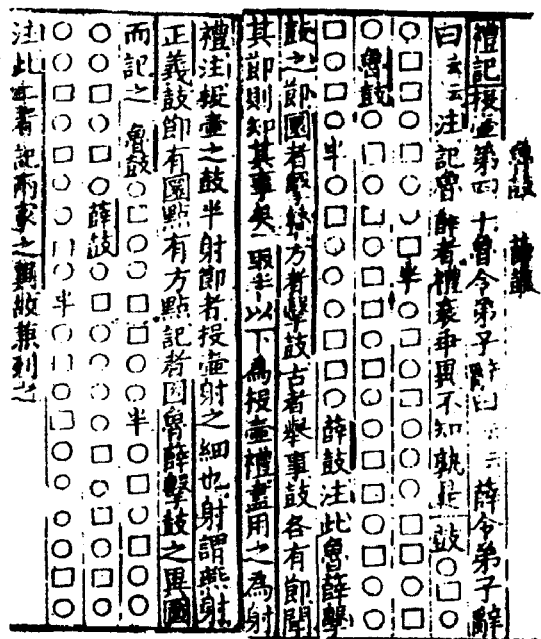 魯鼓 薛鼓
禮記投壺第四十魯令弟子辭曰云云薛令弟子辭
曰云云注記魯薛者禮衰乖異不知孰是鼓○□○
○□□○□○○□半○□○□○○○□□○□
○魯鼓○□○○○□□○□○○□□○□○
○□□○半○□○○○□□○薛鼓注此魯薛擊
鼓之節圜者擊鼙方者擊鼓古者舉事鼓各有節聞
其節則知其事矣取半以下為投壺禮盡用之為射
禮注投壺之鼓半射節者投壺射之細也射謂燕射
正義鼓節有圜點有方點記者因魯薛擊鼓之異圖
而記之 魯鼓○□○○□□○○半○□○○□○
薛鼓
半
注此二者記兩家之異故兼列之